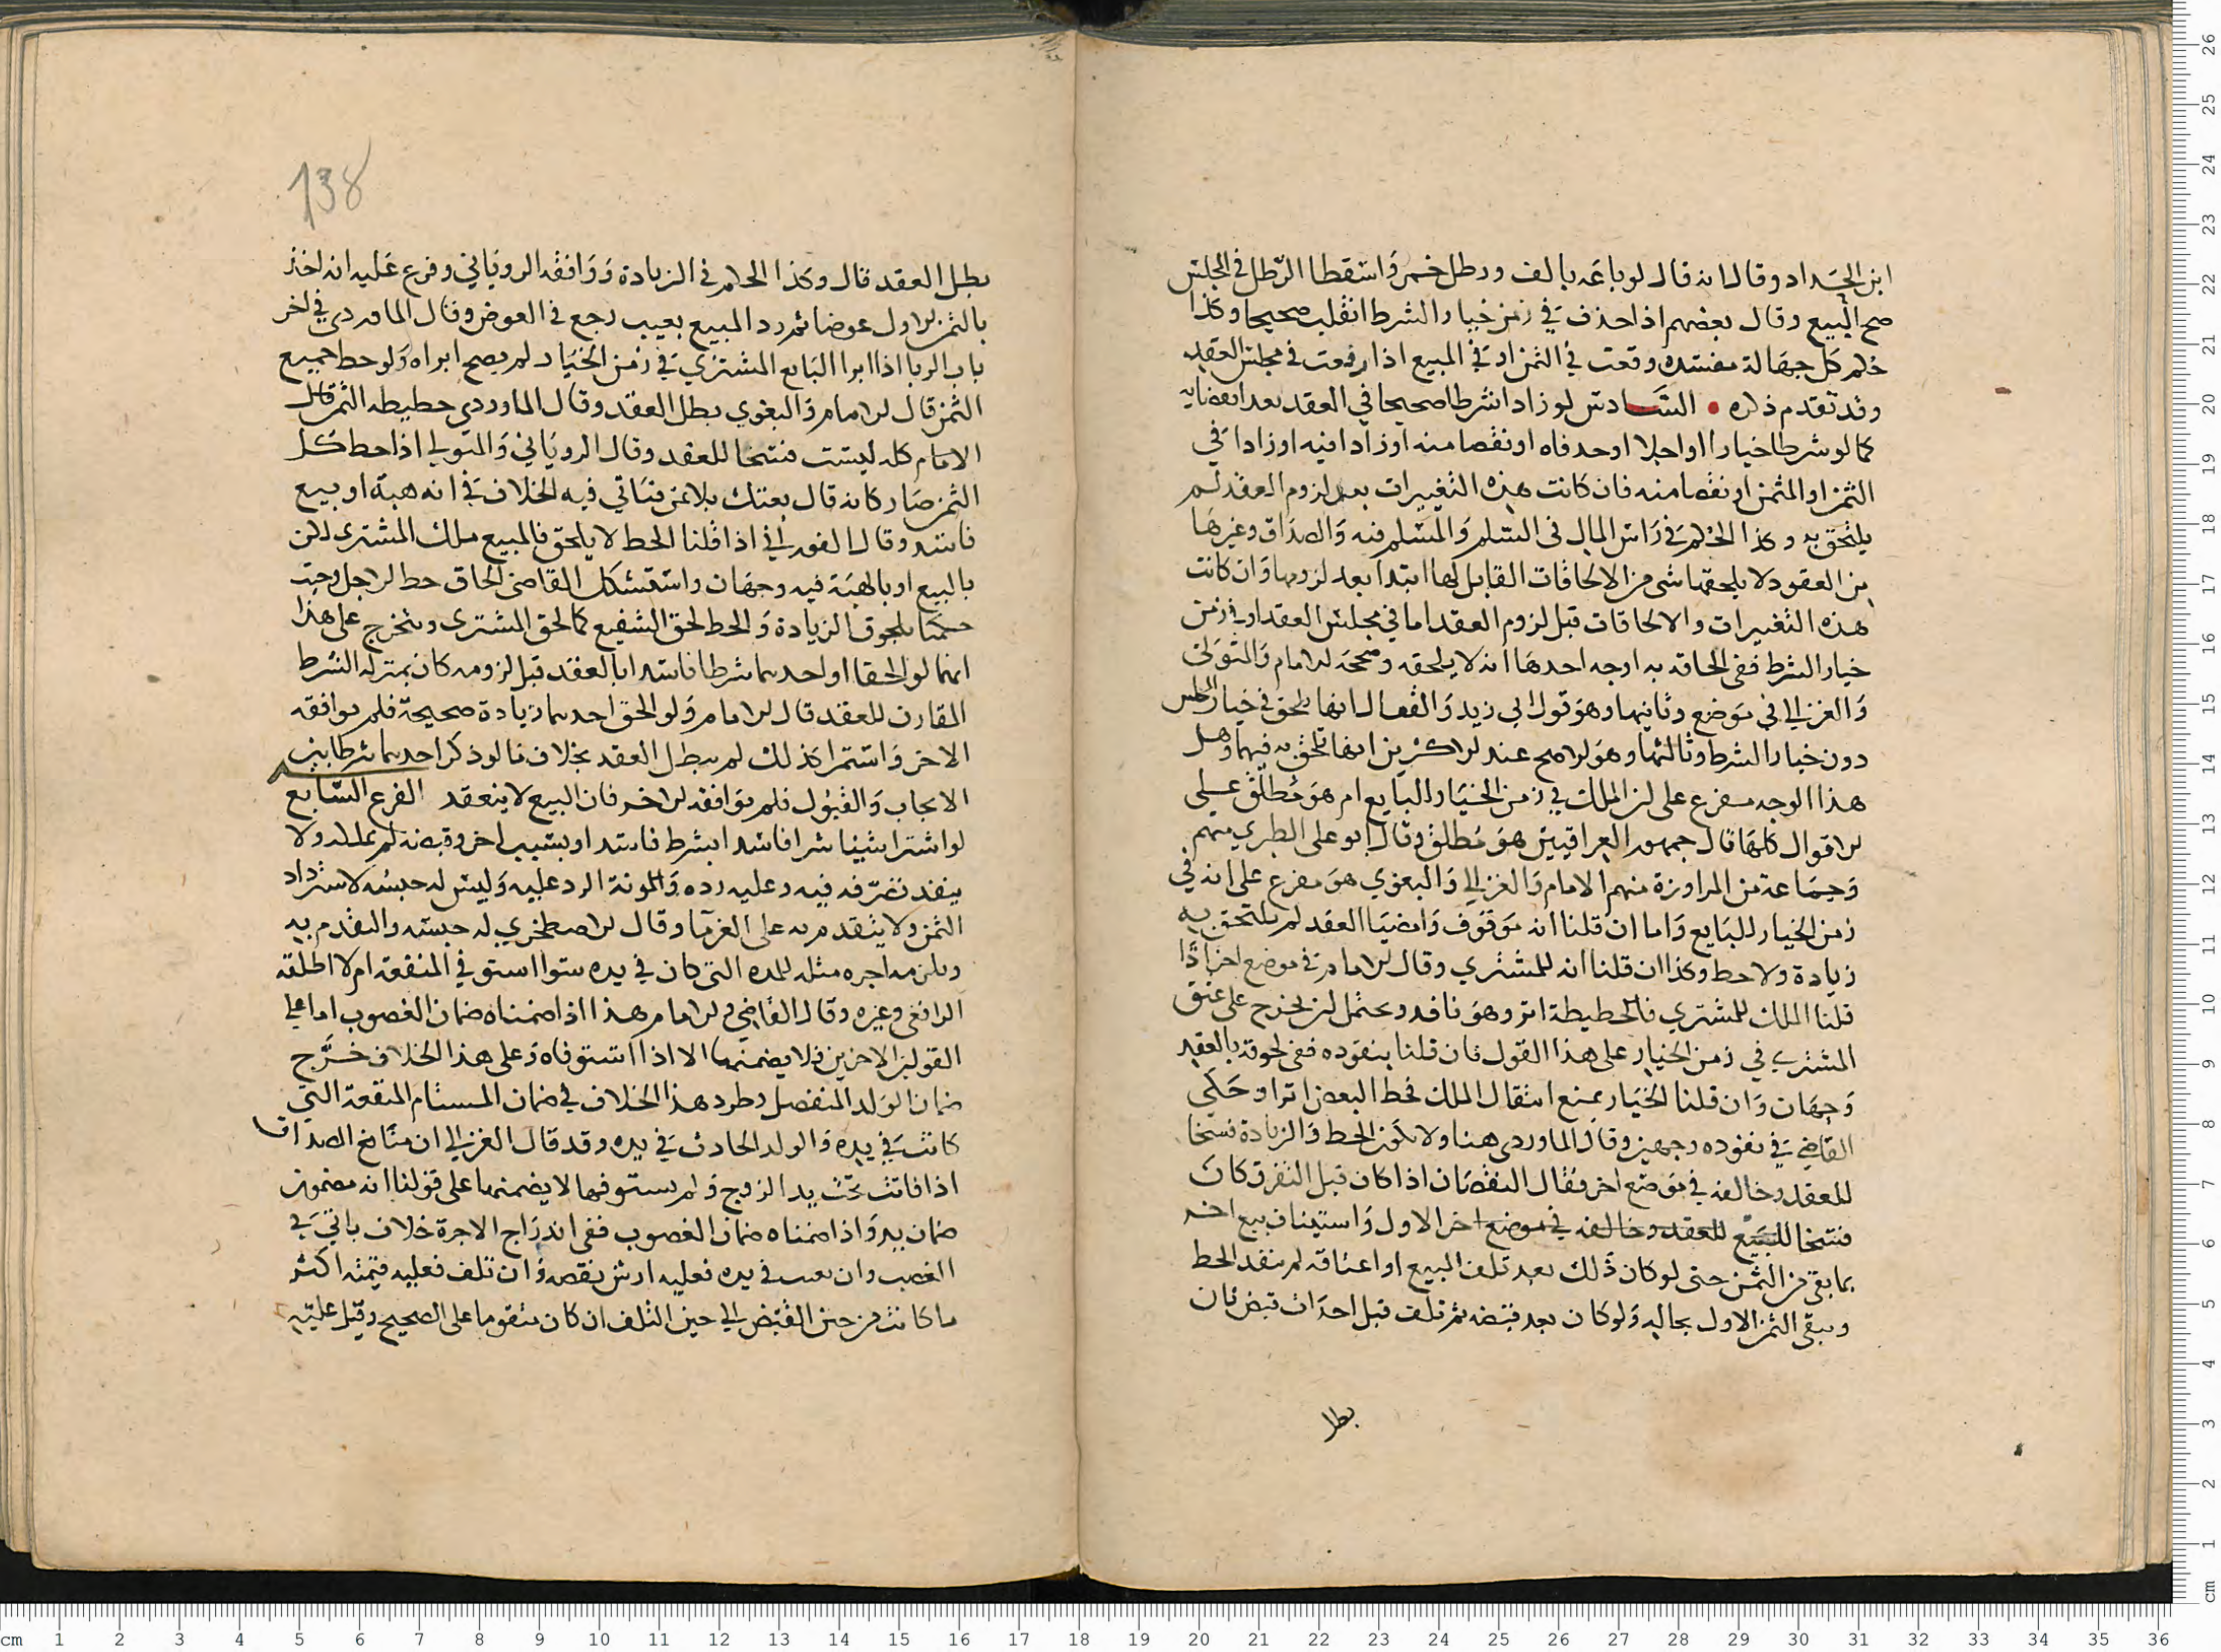 ابن الحداد وقال انه قال لو باعه بالف ورطل خمر واسقطا الرطل في المجلس
صح البيع وقال بعضهم اذا حذف في زمن خيار الشرط انقلب صحيحا وكذا
حكم كل جهالة مفسده وقعت في الثمن او في المبيع اذا رفعت في مجلس العقد
وقد تقدم ذكره • السادس لو زادا شرطا صحيحا في العقد بعد انعقاده
كما لو شرطا خيارا او اجلا او حذفاه او نقصا منه او زادا فيه او زادا في
الثمن او المثمن او نقصا منه فان كانت هذه التغييرات بعد لزوم العقد لم
يلتحق به وكذا الحكم في راس المال في السلم والمسلم فيه والصداق وغيرها
من العقود لا يلحقها شي من الالحاقات القابل لها ابتدا بعد لزومها وان كانت
هذه التغييرات والالحاقات قبل لزوم العقد اما في مجلس العقد او في زمن
خيار الشرط ففي الحاقه به اوجه احدها انه لا يلحقه وصححه الامام والمتولي
والغزالي في موضع وثانيها وهو قول ابي زيد والقفال انها تلحق في خيار المجلس
دون خيار الشرط وثالثها وهو الاصح عند الاكثرين انها تلحق به فيهما وهل
هذا الوجه مفرع على ان الملك في زمن الخيار للبايع ام هو مطلق على
الاقوال كلها قال جمهور العراقيين هو مطلق وقال ابو علي الطبري منهم
وجماعة من المراوزة منهم الامام والغزالي والبغوي هو مفرع على انه في
زمن الخيار للبايع واما ان قلنا انه موقوف وامضيا العقد لم يلتحق به
زيادة ولا حط وكذا ان قلنا انه للمشتري وقال الامام في موضع اخر اذا
قلنا الملك للمشتري فالحطيطة ابرا وهو نافد ويحتمل ان يخرج على عتق
المشتري في زمن الخيار على هذا القول فان قلنا بنفوده ففي لحوقه بالعقد
وجهان وان قلنا الخيار يمنع انتقال الملك فحط البعض ابرا وحكى
القاضي في نفوده وجهين وقال الماوردي هنا ولا يكون الحط والزيادة فسخا
للعقد وخالفه في موضع اخر فقال النقصان اذا كان قبل التفرق كان
فسخا للبيع للعقد وخالفه في موضع اخر الاول واستيناف بيع اخر
بما بقي من الثمن حتى لو كان ذلك بعد تلف المبيع او اعتاقه لم ينفد الحط
ويبقى الثمن الاول بحاله ولو كان بعد قبضه ثم تلف قبل احداث قبض ثان
بطل
138
بطل العقد قال وكذا الحكم في الزيادة ووافقه الروياني وفرع عليه انه اخذ
بالثمن الاول عوضا ثم رد المبيع بعيب رجع في العوض وقال الماوردي في اخر
باب الربا اذا ابرا البايع المشتري في زمن الخيار لم يصح ابراه ولو حط جميع
الثمن قال الامام والبغوي بطل العقد وقال الماوردي حطيطه الثمن قال
الامام كله ليست فسخا للعقد وقال الروياني والمتولي اذا حط كل
الثمن صار كانه قال بعتك بلا ثمن فياتي فيه الخلاف في انه هبة او بيع
فاسد وقال الفوراني اذا قلنا الحط لا يلحق فالمبيع ملك المشتري لكن
بالبيع او بالهبة فيه وجهان واستشكل القاضي الحاق حط الاجل وحيث
حكمنا بلحوق الزيادة والحط لحق الشفيع كما لحق المشتري ويتخرج على هذا
انهما لو الحقا او احدهما شرطا فاسدا بالعقد قبل لزومه كان بمنزلة الشرط
المقارن للعقد قال الامام ولو الحق احدهما زيادة صحيحة فلم يوافقه
الاخر واستمرا كذلك لم يبطل العقد بخلاف ما لو ذكر احدهما شرطا بين
الايجاب والقبول فلم يوافقه الاخر فان البيع لا ينعقد الفرع السابع
لو اشترا شيئا شرا فاسدا بشرط فاسد او بسبب اخر وقبضه لم يملكه ولا
ينفد تصرفه فيه وعليه رده والمونة الرد عليه وليس له حبسه لاسترداد
الثمن ولا يتقدم به على الغرما وقال الاصطخري له حبسه والتقدم به
ويلزمه اجره مثله للمده التي كان في يده سوا استوفي المنفعة ام لا اطلقه
الرافعي وغيره وقال القاضي والامام هذا اذا ضمناه ضمان الغصوب اما على
القولين الاخرين فلا يضمنها الا اذا استوفاه وعلى هذا الخلاف خرج
ضمان الولد المنفصل وطرد هذا الخلاف في ضمان المستام المنفعة التي
كانت في يده والولد الحادث في يده وقد قال الغزالي ان منافع الصداق
اذا فاتت تحت يد الزوج ولم يستوفها لا يضمنها على قولنا انه مضمون
ضمان يد واذا ضمناه ضمان الغصوب ففي اندراج الاجرة خلاف ياتي في
الغصب وان تعيب في يده فعليه ارش نقصه وان تلف فعليه قيمته اكثر
ما كانت من حين القبض الى حين التلف ان كان متقوما على الصحيح وقيل عليه